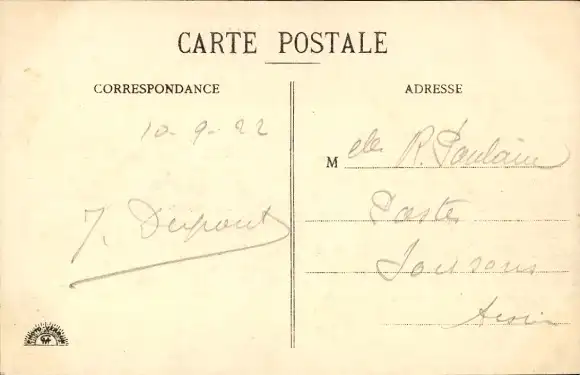 CARTE POSTALE
CORRESPONDANCE
ADRESSE
10-9-22
J. Dupont
M elle R. Poulain
Poste